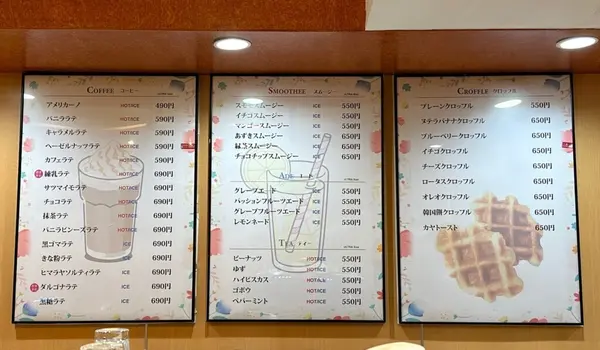 COFFEE コーヒー
アメリカーノ HOT/ICE 490円
バニララテ HOT/ICE 590円
キャラメルラテ HOT/ICE 590円
ヘーゼルナッツラテ HOT/ICE 590円
カフェラテ HOT/ICE 590円
練乳ラテ HOT/ICE 690円
サツマイモラテ HOT/ICE 690円
チョコラテ HOT/ICE 690円
抹茶ラテ HOT/ICE 690円
バニラビーンズラテ HOT/ICE 690円
黒ゴマラテ ICE 690円
きな粉ラテ ICE 690円
ヒマラヤソルティラテ ICE 690円
ダルゴナラテ ICE 690円
黒糖ラテ ICE 690円
SMOOTHEE スムージー
スモモスムージー ICE 550円
イチゴスムージー ICE 550円
マンゴースムージー ICE 550円
あずきスムージー ICE 650円
緑茶スムージー ICE 650円
チョコチップスムージー ICE 650円
ADE エード
グレープエード ICE 550円
パッションフルーツエード ICE 550円
グレープフルーツエード ICE 550円
レモンネード ICE 550円
TEA ティー
ピーナッツ HOT/ICE 550円
ゆず HOT/ICE 550円
ハイビスカス HOT/ICE 550円
ゴボウ HOT/ICE 550円
ペパーミント HOT/ICE 550円
CROFFLE クロッフル
プレーンクロッフル 550円
ヌテラバナナクロッフル 650円
ブルーベリークロッフル 650円
イチゴクロッフル 650円
チーズクロッフル 650円
ロータスクロッフル 650円
オレオクロッフル 650円
韓国餅クロッフル 650円
カヤトースト 650円